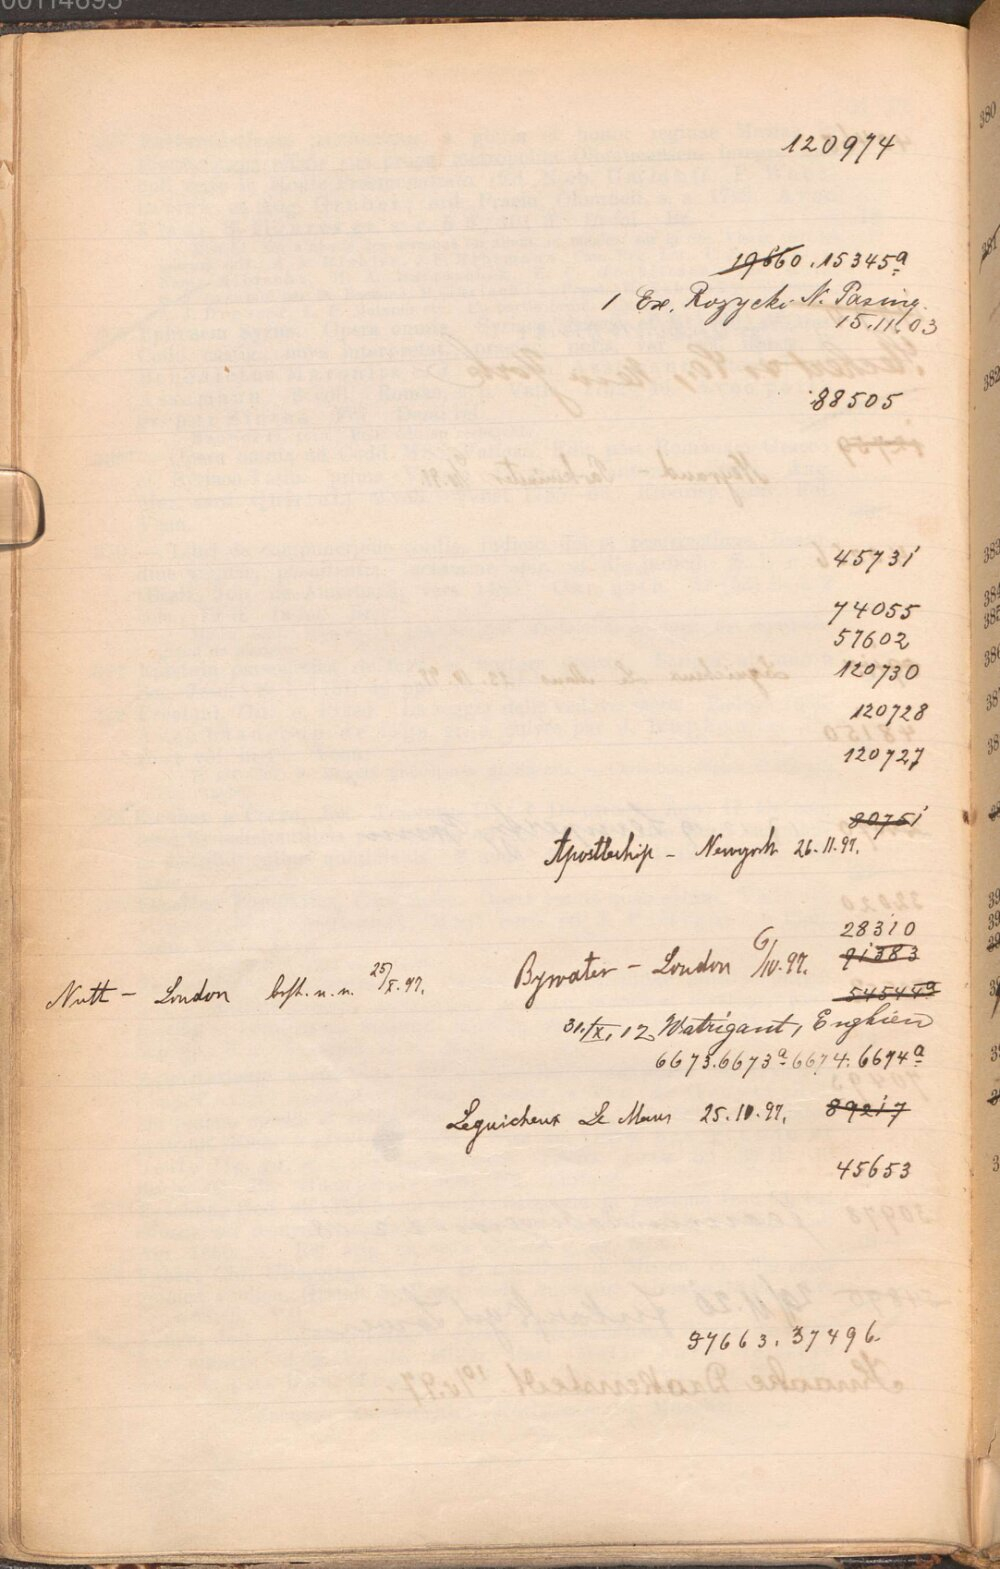 00114695
120974
19660.15345a
1 Ex. Rozycki N. Pasing.
15.11.03
88505
45731
74055
57602
120730
120728
120727
80751
Apostleship - Newyork 26.11.97.
28310
Bywater - London 6/10.97. 91383
Nutt - London best. n. n. 25/X.97.
54544a
31./X.12 Watrigant, Enghien
6673.6673a.6674.6674a
Leguicheux Le Mans 25.10.97. 89217
45653
37663.37496.
380
381
382
383
384
385
386